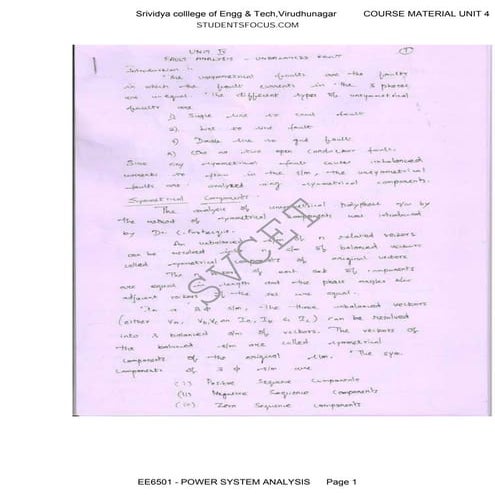 Srividya colllege of Engg & Tech,Virudhunagar COURSE MATERIAL UNIT 4
STUDENTSFOCUS.COM
UNIT IV
1
FAULT ANALYSIS - UNBALANCED FAULT
Introduction :-
The unsymmetrical faults are the faults
in which the fault currents in the 3 phases
are unequal. The different types of unsymmetrical
faults are
1) Single line to gnd fault
2) Line to line fault
3) Double line to gnd fault
4) One or two open conductor fault.
Since any symmetrical fault causes unbalanced
currents to flow in the s/m, the unsymmetrical
faults are analysed using symmetrical components.
Symmetrical Components:
The analysis of unsymmetrical polyphase n/w by
the method of symmetrical components was introduced
by Dr. C.
An unbalanced s/m of n related vectors
can be resolved into n s/m of balanced vectors
called symmetrical components of original vectors
The n vectors of each set of components
are equal in length and the phase angles b/w
adjacent vectors of the set are equal.
In a 3 φ s/m, the three unbalanced vectors
(either Va, Vb, Vc or Ia, Ib & Ic) can be resolved
into 3 balanced s/m of vectors. The vectors of
the balanced s/m are called symmetrical
components of the original s/m. The sym.
components of 3 φ s/m are
(i) Positive Sequence Components
(ii) Negative Sequence Components
(iii) Zero Sequence Components
SVCET
EE6501 - POWER SYSTEM ANALYSIS Page 1